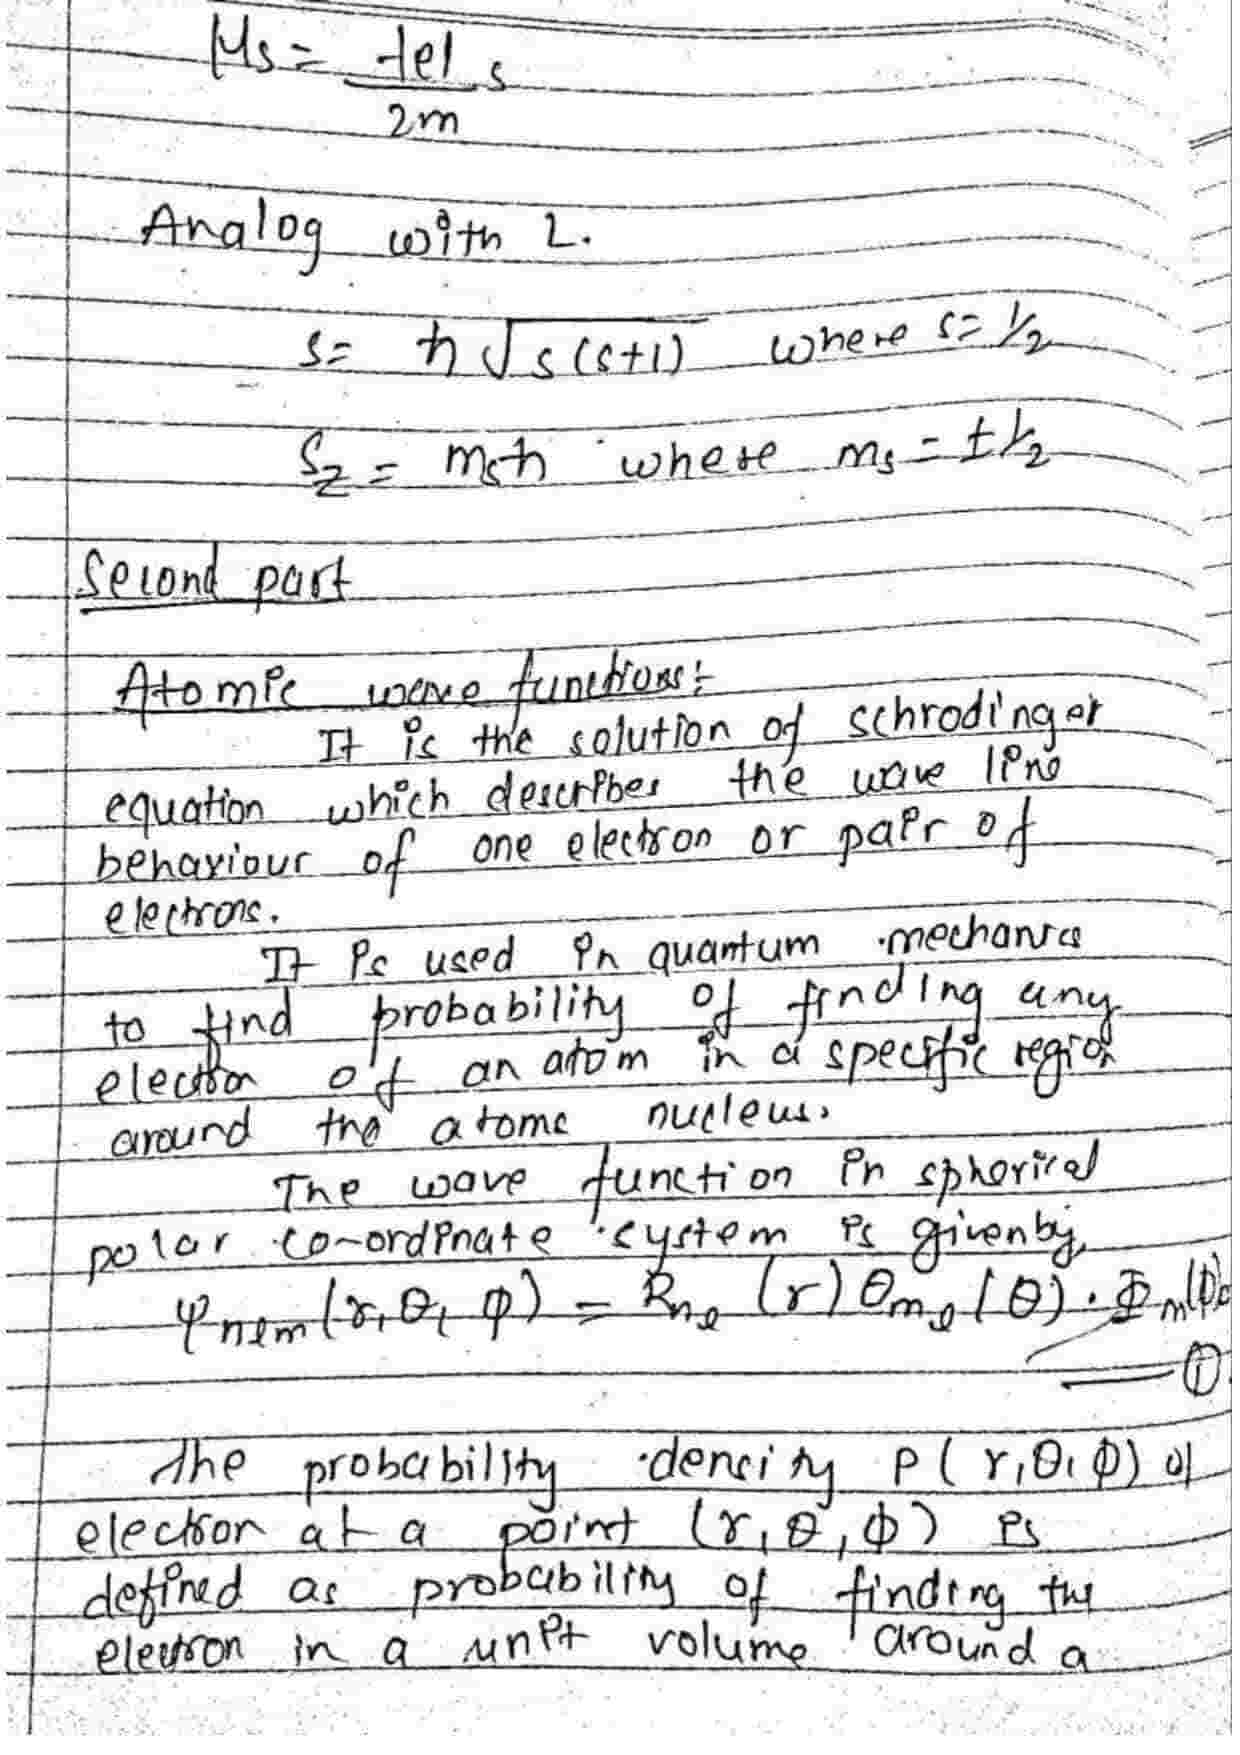 μs = -|e| s
2m
Analog with L.
s = ħ √s(s+1) where s = 1/2
Sz = msħ where ms = ±1/2
Second part
Atomic wave functions:
It is the solution of schrodinger
equation which describes the wave line
behaviour of one electron or pair of
electrons.
It is used in quantum mechanics
to find probability of finding any
electron of an atom in a specific region
around the atoms nucleus.
The wave function in spherical
polar co-ordinate system is given by,
ψnlm (r, θ, φ) = Rnl (r) Θml (θ) · Φm(φ)
①
The probability density P(r, θ, φ) of
electron at a point (r, θ, φ) is
defined as probability of finding the
electron in a unit volume around a